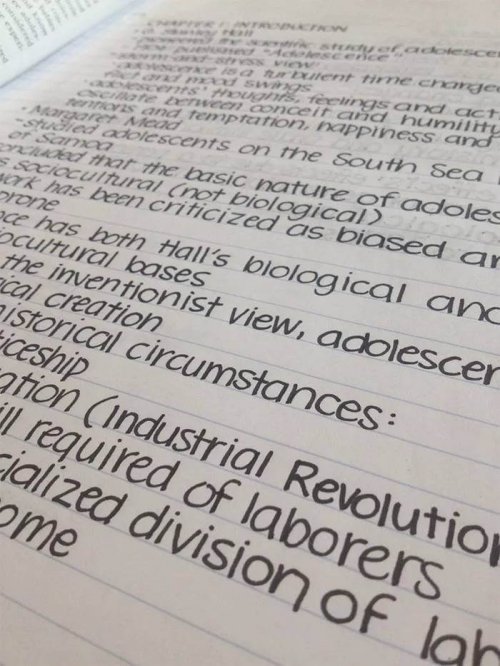 CHAPTER 1: INTRODUCTION
G. Stanley Hall
pioneered the scientific study of adolescen
1904 published "Adolescence"
storm-and-stress view:
adolescence is a turbulent time charge
flict and mood swings
adolescents' thoughts, feelings and act
oscillate between conceit and humilit
tentions and temptation, happiness and
Margaret Mead
-studied adolescents on the South Sea
of Samoa
oncluded that the basic nature of adoles
s sociocultural (not biological)
work has been criticized as biased an
prone
nce has both Hall's biological and
iocultural bases
the inventionist view, adolescen
ical creation
historical circumstances:
ticeship
ation (Industrial Revolution
ill required of laborers
cialized division of lab
ome